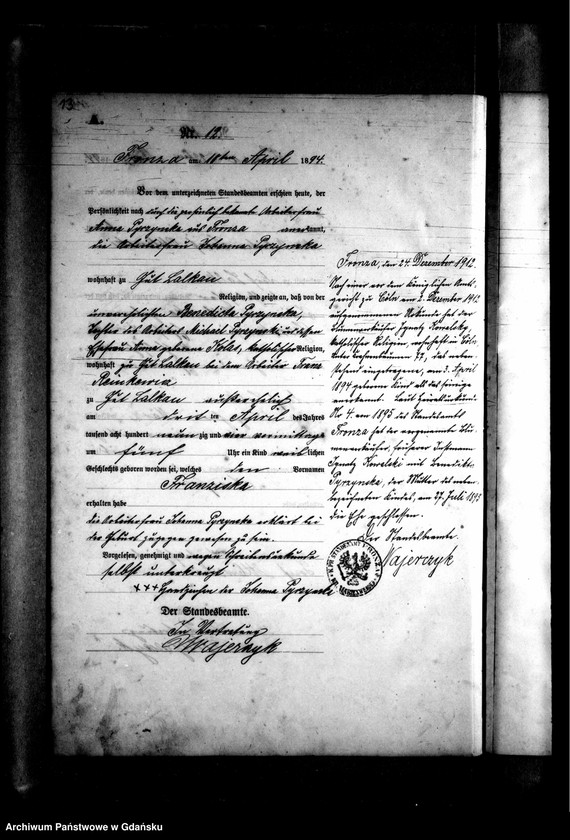 13.
A.
Nr. 12
Fronza am 10ten April 1894.
Vor dem unterzeichneten Standesbeamten erschien heute, der
Persönlichkeit nach durch die persönlich bekannte Arbeiterfrau
Anna Pyrzynska aus Fronza anerkannt,
die Arbeiterfrau Johanna Pyrzynska
wohnhaft zu Gut Lalkau
Religion, und zeigte an, daß von der
unverehelichten Benedicta Pyrzynska,
Tochter des Arbeiters Michael Pyrzynski und dessen
Ehefrau Anna geborenen Kolas, katholischer Religion,
wohnhaft zu Gut Lalkau bei dem Arbeiter Franz
zu Gut Lalkau außerehelich
am dritten April des Jahres
tausend acht hundert neunzig und vier vormittags
um fünf Uhr ein Kind weiblichen
Geschlechts geboren worden sei, welches den Vornamen
Franziska
erhalten habe
die Arbeiterfrau Johanna Pyrzynska erklärt bei
der Geburt zugegen gewesen zu sein.
Vorgelesen, genehmigt und wegen Schreibensunkunde
selbst unterkreuzt
+++ Handzeichen der Johanna Pyrzynska
Der Standesbeamte.
In Vertretung
Majerczyk
Fronza, den 24. Dezember 1912.
Nach einer vor dem Königlichen Amts-
gericht zu Cöln am 2. Dezember 1912
aufgenommenen Urkunde hat der
Ignatz Kowalski,
katholischer Religion, wohnhaft in Cöln,
72, das neben-
stehend eingetragene, am 3. April
1894 geborene Kind als das seinige
anerkannt. Laut Heiratsurkunde
Nr 4 am 1895 des Standesamts
Fronza hat der vorgenannte
früherer Instmann
Ignatz Kowalski mit Benedikta
Pyrzynska, der Mutter des neben-
bezeichneten Kindes, am 27. Juli 1895
die Ehe geschlossen.
Der Standesbeamte
Majerczyk
Archiwum Państwowe w Gdańsku